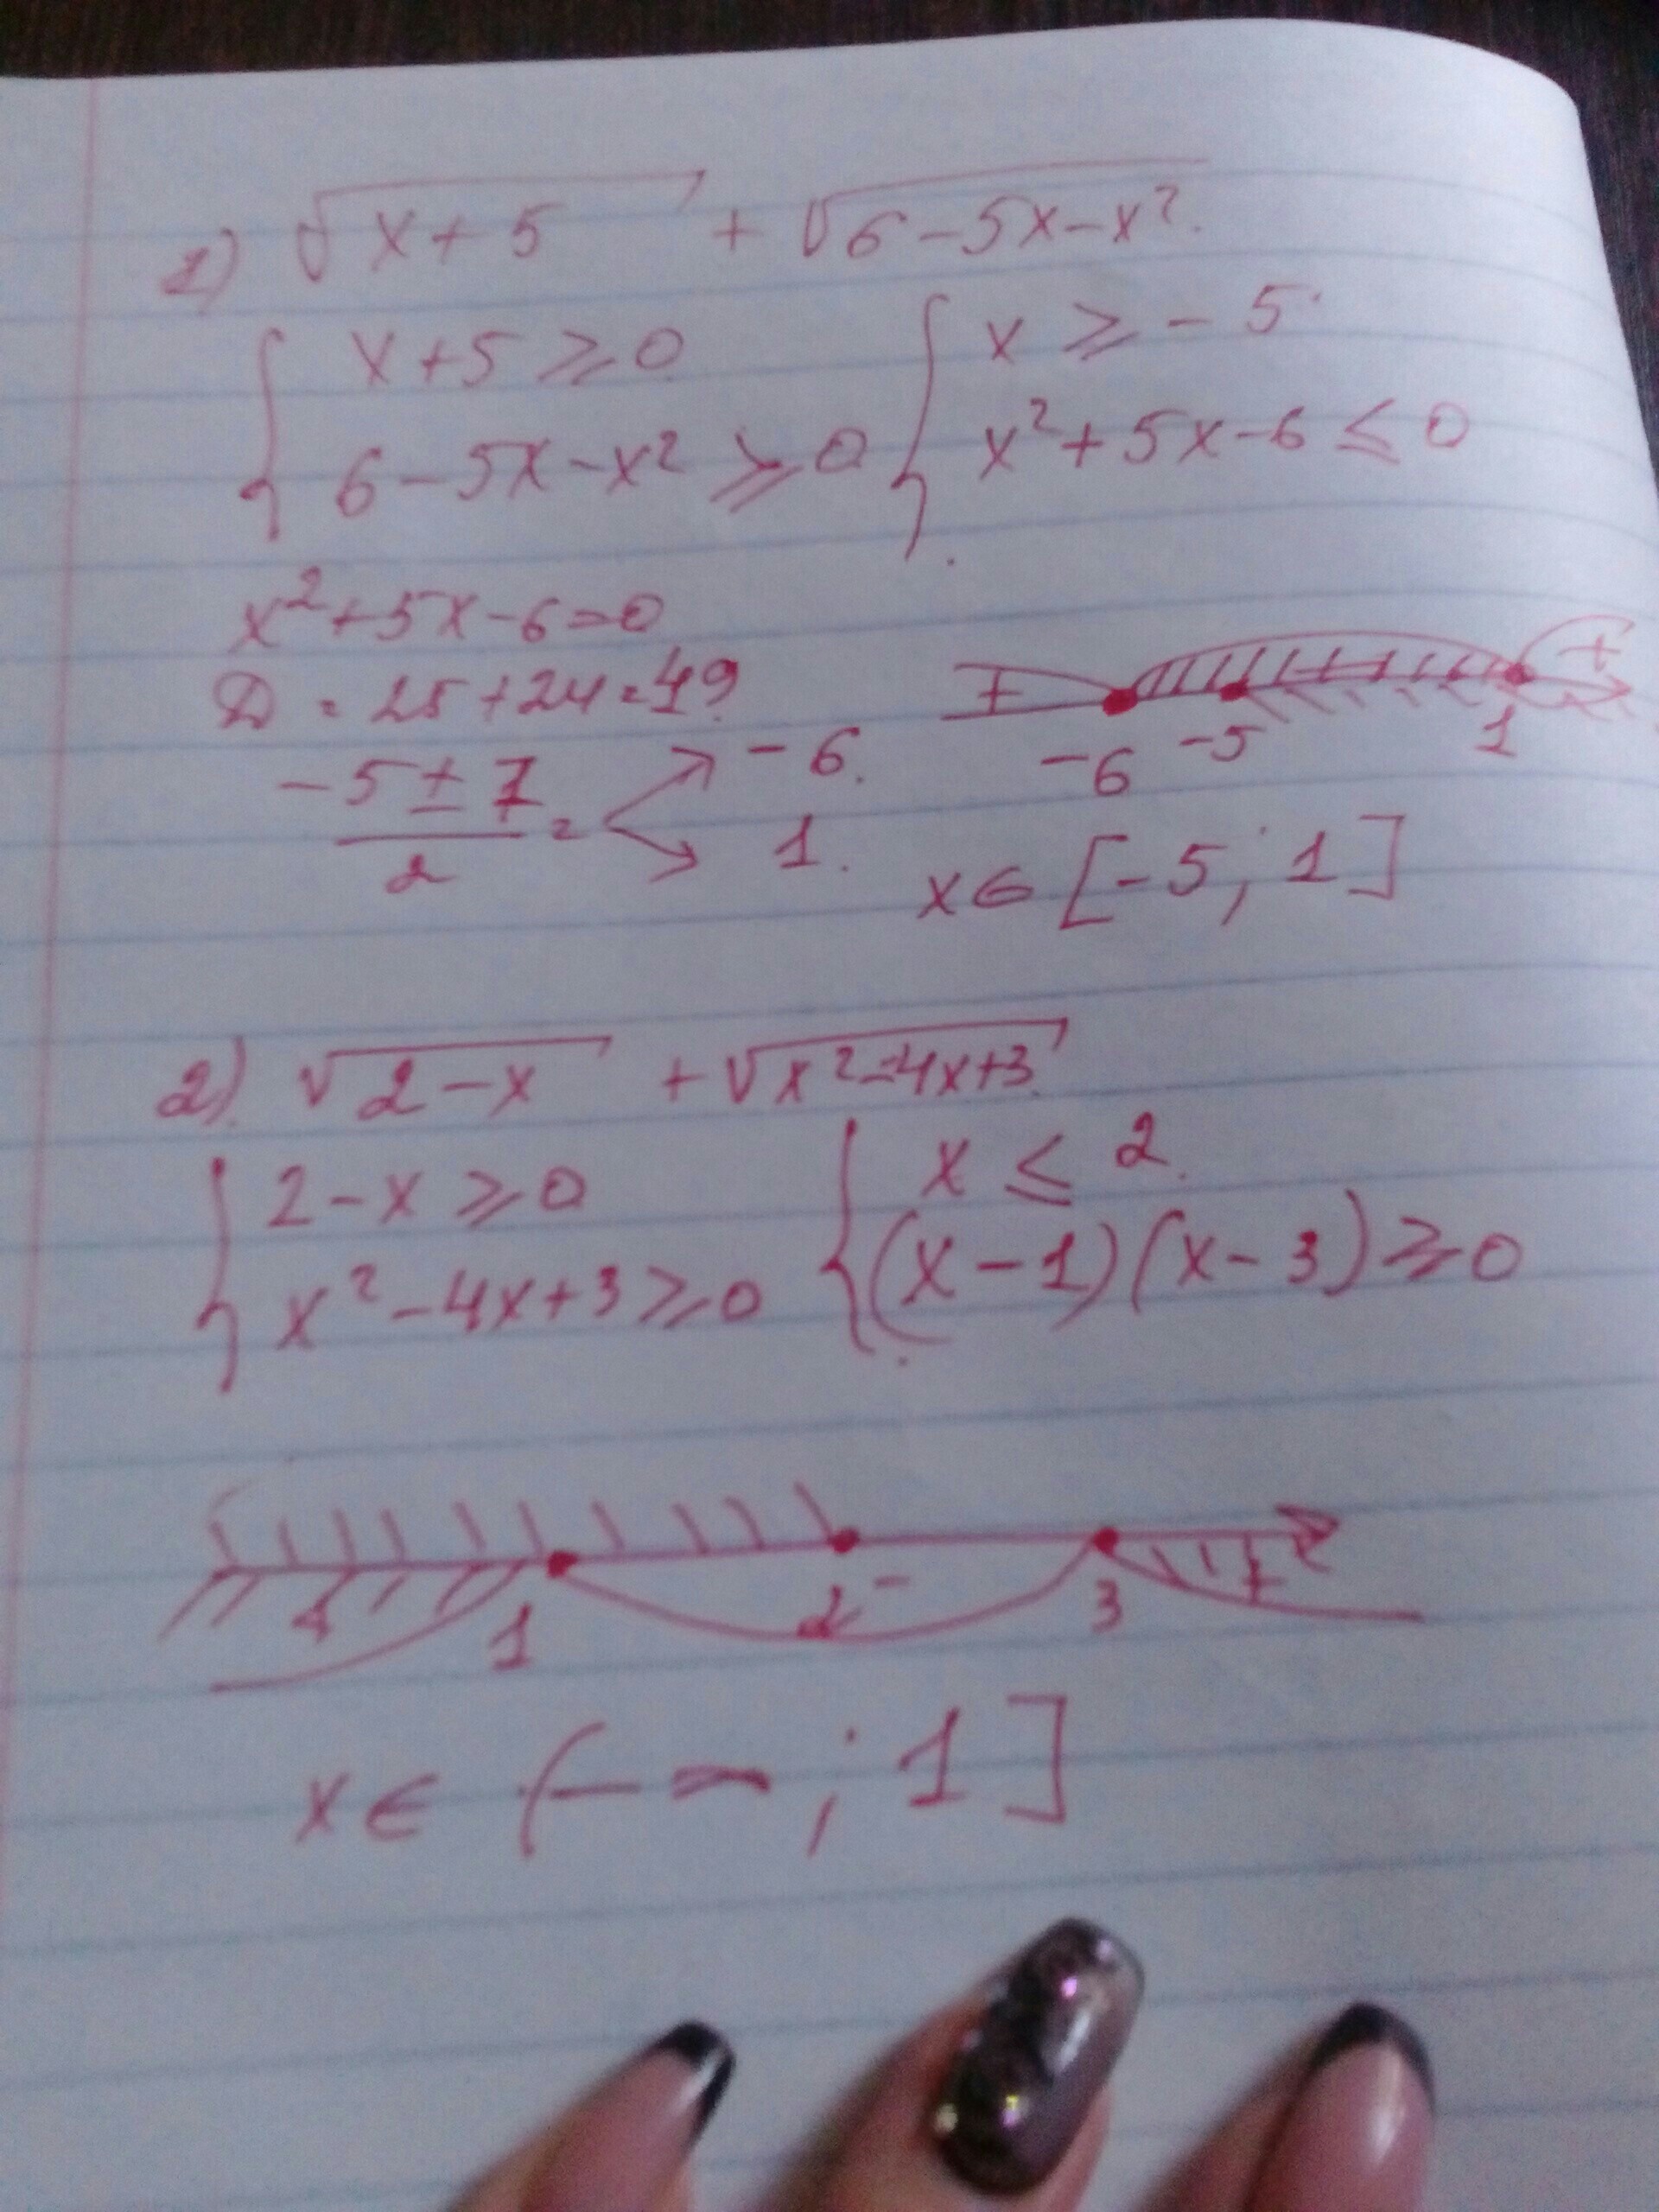 1) √(x+5) + √(6-5x-x²)
{ x+5 ≥ 0 { x ≥ -5
6-5x-x² ≥ 0 x²+5x-6 ≤ 0
x²+5x-6=0
D = 25+24=49
(-5±7)/2 = -6. 1.
+ + -6 -5 1
x∈ [-5; 1]
2) √(2-x) + √(x²-4x+3)
{ 2-x ≥ 0 { x ≤ 2
x²-4x+3 ≥ 0 (x-1)(x-3) ≥ 0
+ 1 2 - 3 +
x∈ (-∞; 1]